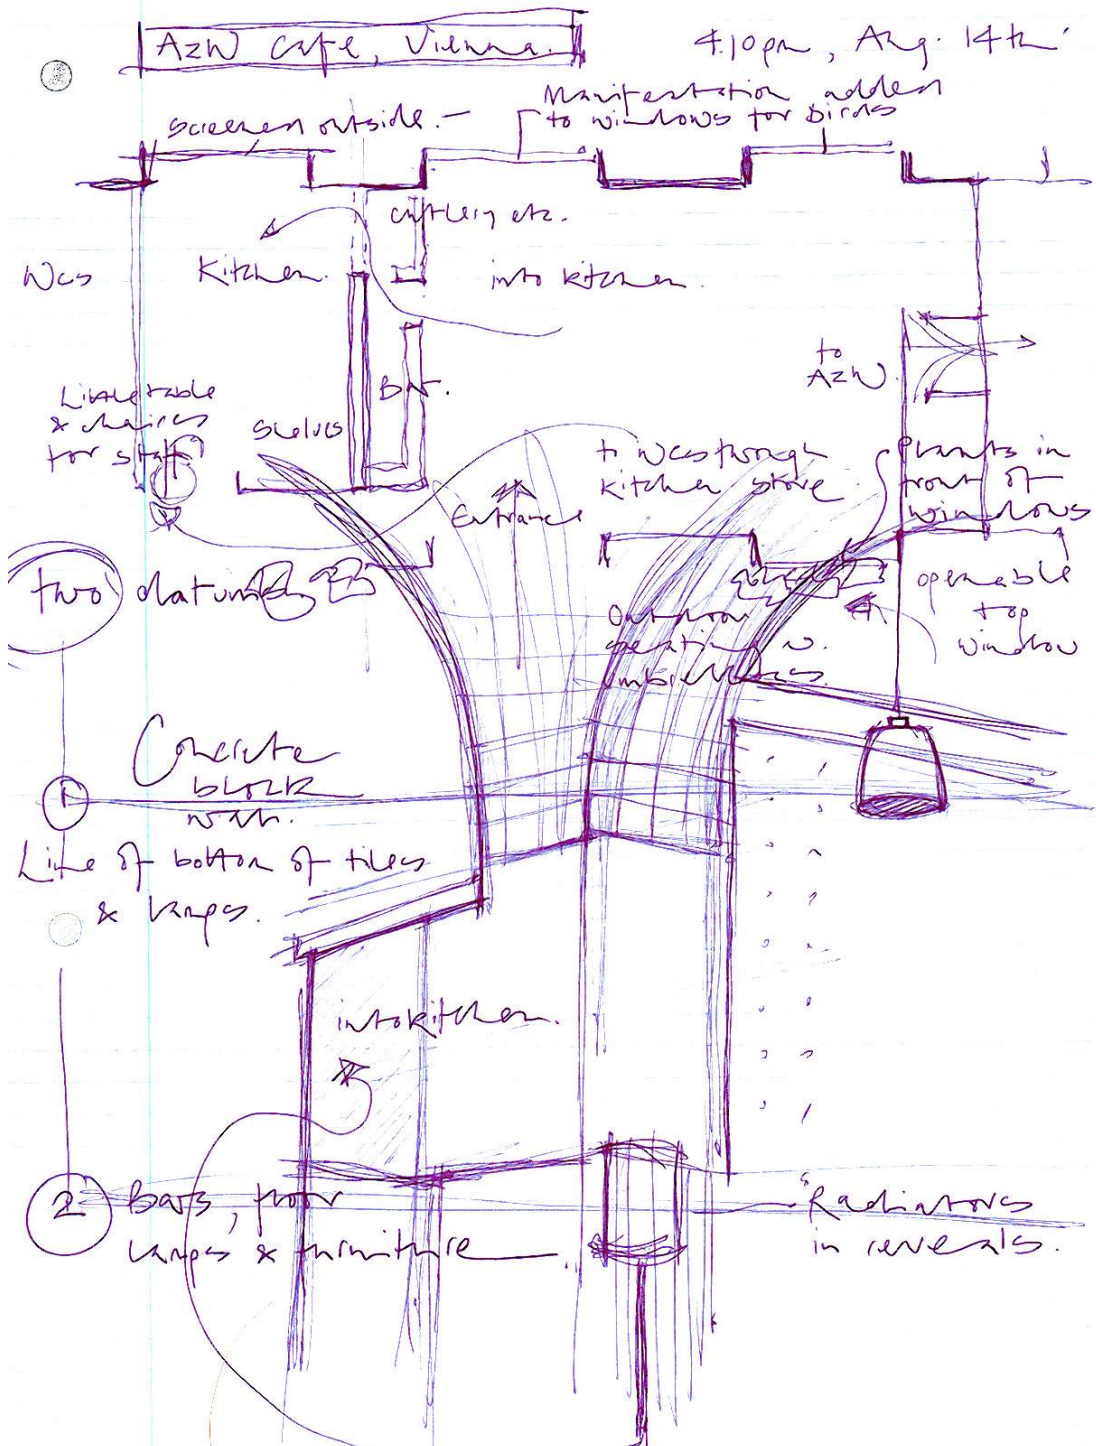 AzW Cafe, Vienna.
4.10pm, Aug. 14th
Screened outside.-
Manifestation added
to windows for birds
cutlery etc.
Wcs
Kitchen.
into kitchen.
to
AzW.
Bar.
Little table
& chairs
for staff
Shelves
to Wcs through
kitchen store.
Plants in
front of
windows
Entrance
two datums
openable
top
window
Outdoor
seating w.
umbrellas.
1
Concrete
block
wall.
Line of bottom of tiles
& lamps.
into kitchen.
2
Bars, floor
lamps & furniture
Radiators
in reveals.